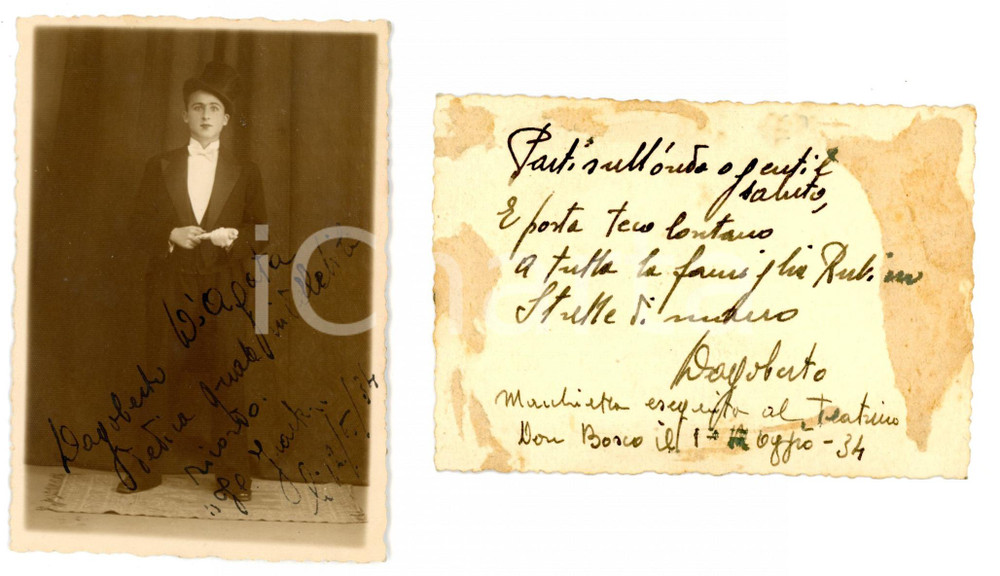 Dagoberto D'Agata
dedica
ricordo.
"Gé
Parti sull'onda o gentil
saluto,
E porta teco lontano
A tutta la famiglia Rubin
Strette di mano
Dagoberto
Macchietta eseguita al Teatrino
Don Bosco il 1° Maggio - 34